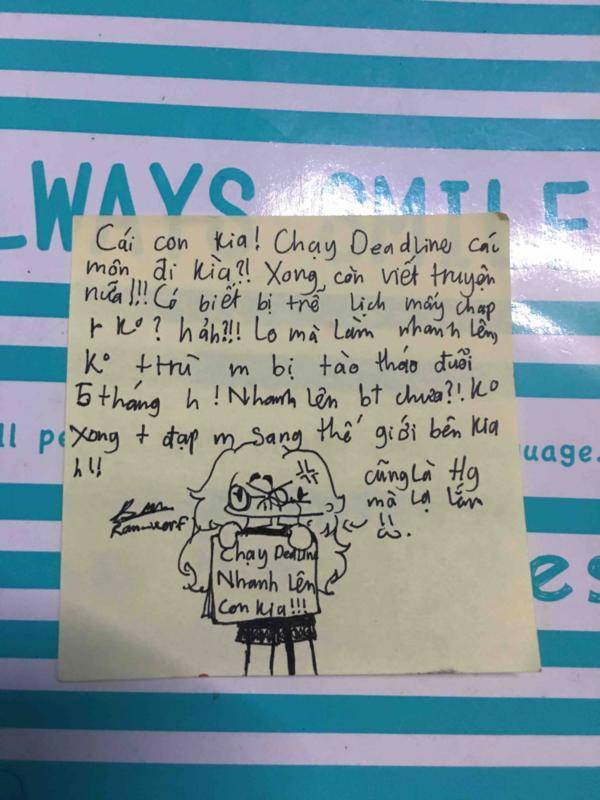 WAYS SMILE
Cái con kia! Chạy Deadline các
môn đi kìa?! Xong còn viết truyện
nữa!!! Có biết bị trễ lịch mấy chap
r K° ? hảh?!! Lo mà làm nhanh lên,
K° t trù m bị tào tháo đuổi
5 tháng h ! Nhanh lên bt chưa?! K°
xong t đạp m sang thế giới bên kia
h!!
cũng là Hg
mà lạ lắm
Chạy Deadline
Nhanh Lên
Con kia!!!
ll pe
uage.
es